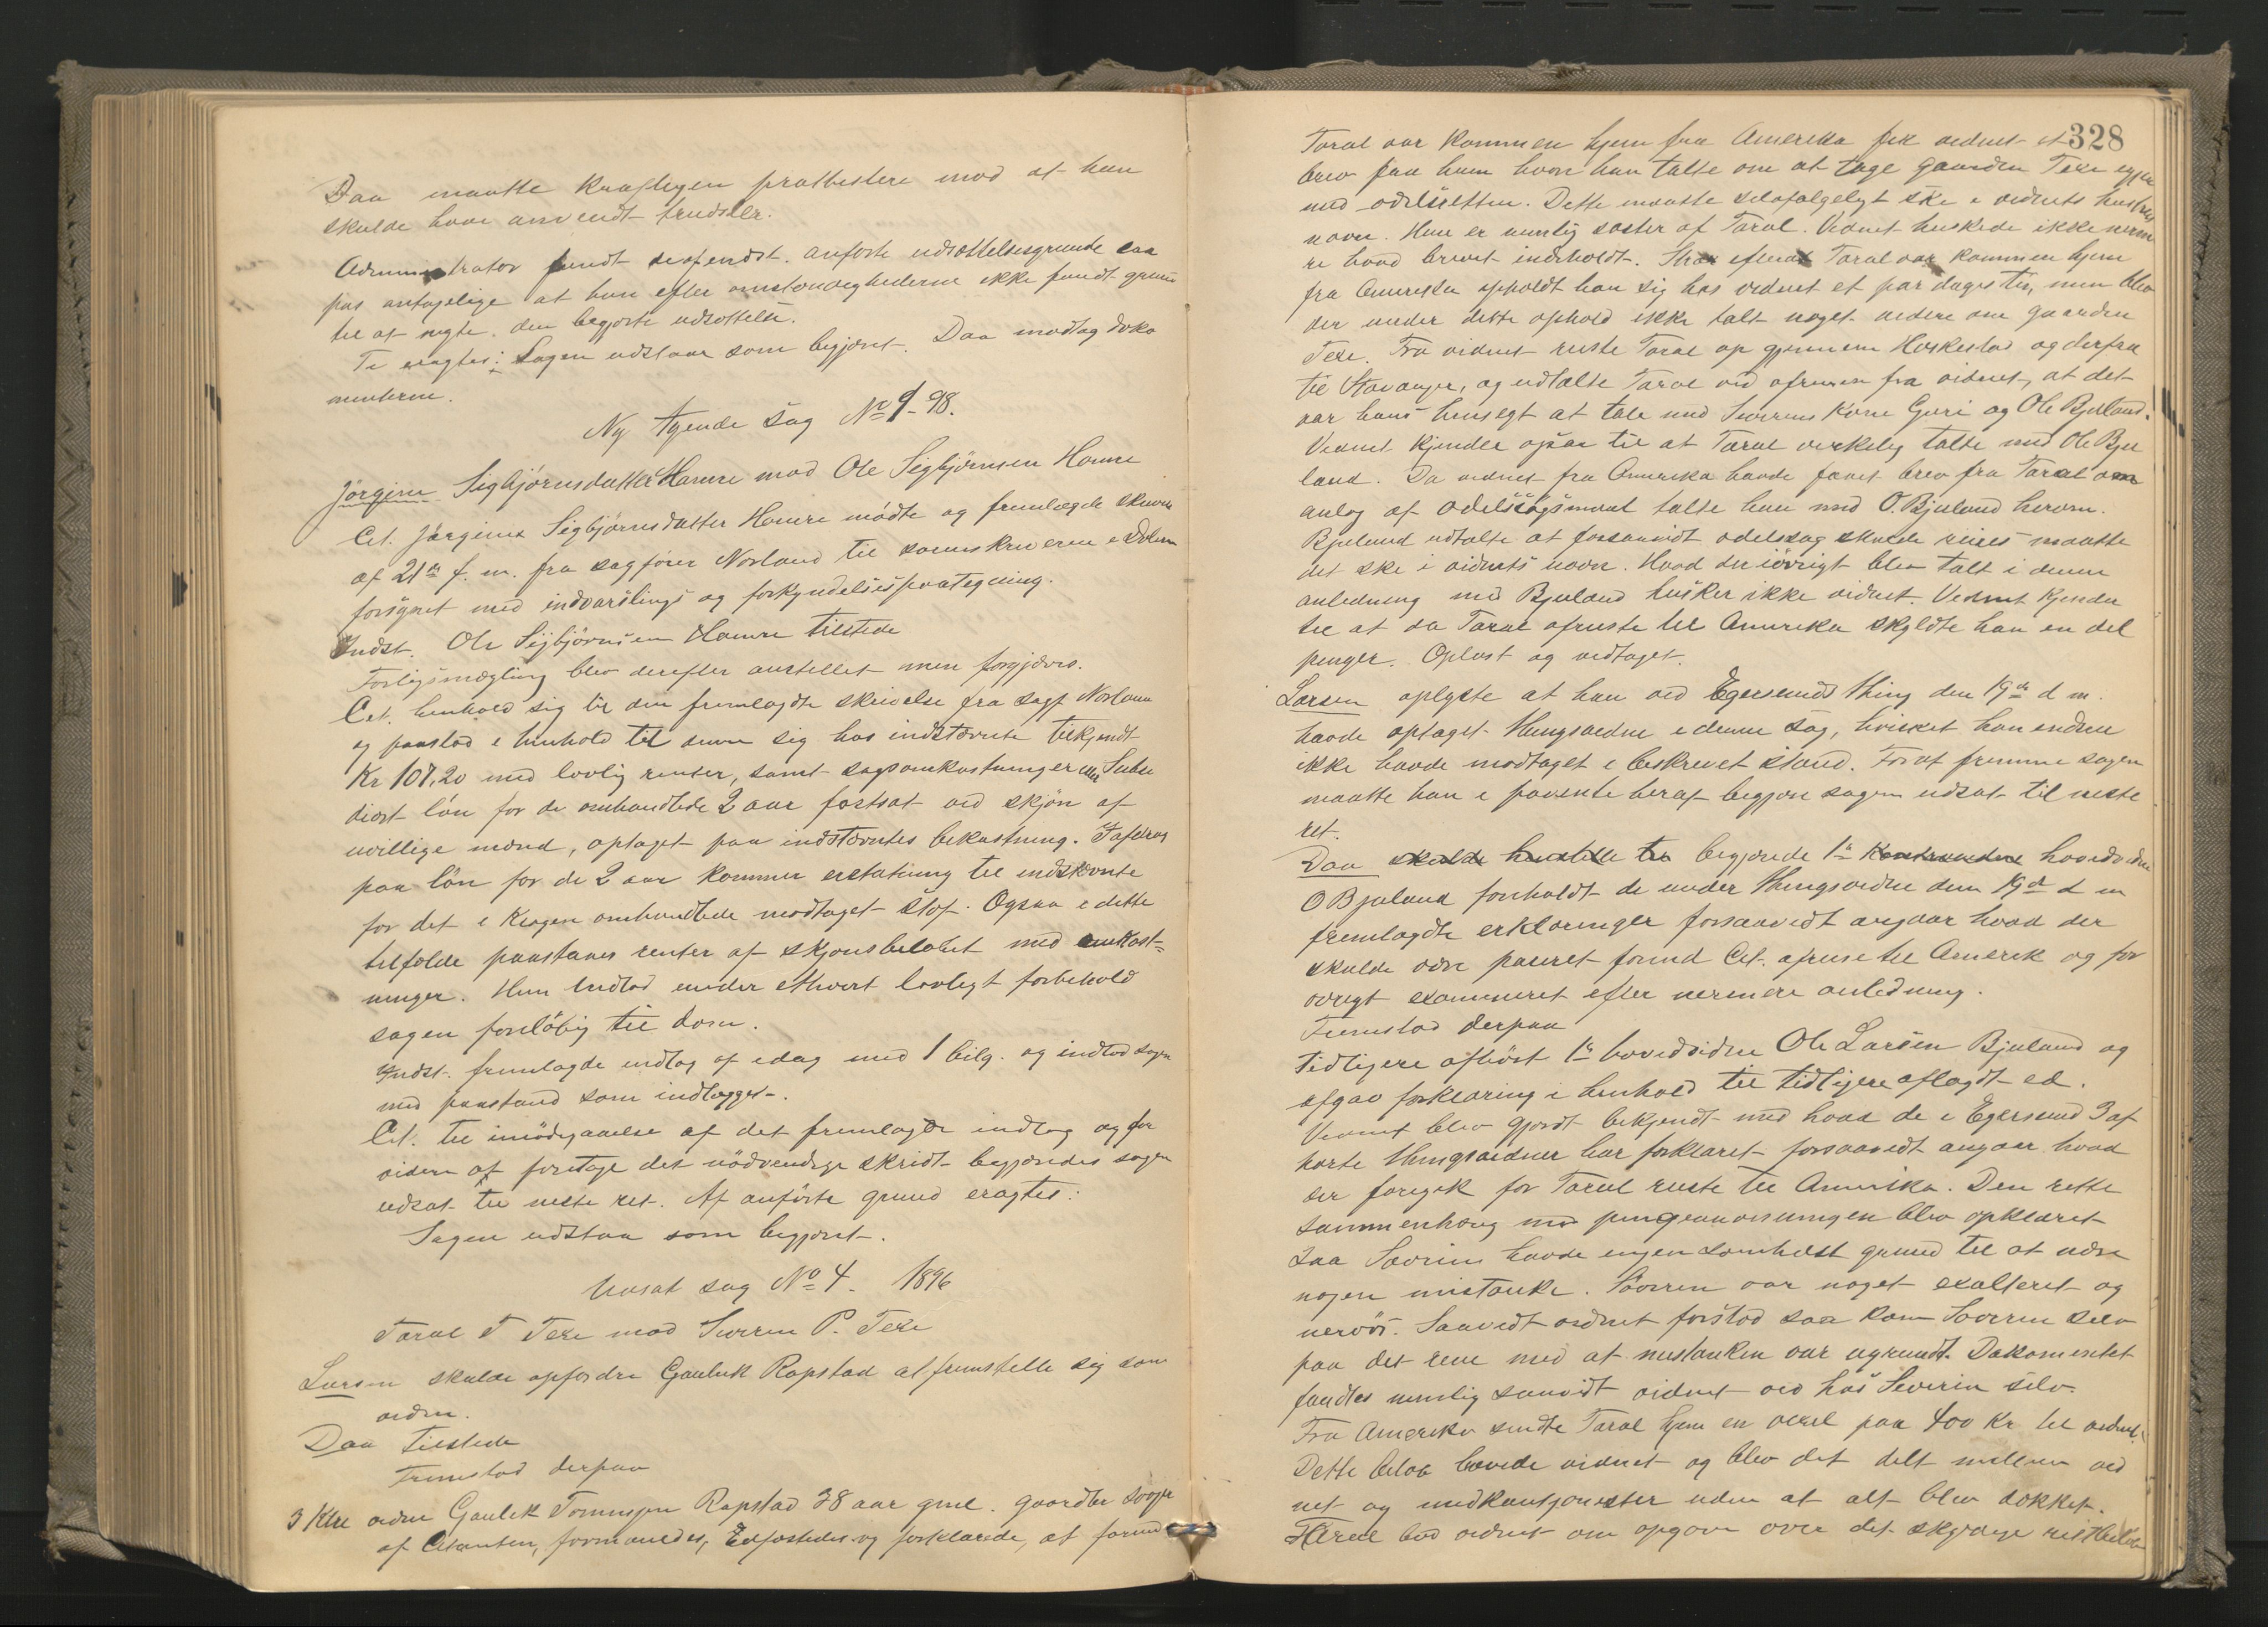 Daa maatte kraftigen protestere mod at han
skulde have anvendt trudsler.
Administrator fandt de af indst. anførte udsættelsesgrunde saa
pas antagelige at han efter omstændighederne ikke fandt grund
til at negte den begjærte udsættelse.
Ti eragtes: Sagen udstaar som begjæret. Daa modtog doku
menterne.
Ny Tgende Sag No 9-98.
Jørgine Sigbjørnsdatter Hamre mod Ole Sigbjørnsen Hamre
Cit. Jørgine Sigbjørnsdatter Hamre mødte og fremlagde skrivelse
af 21de f. m. fra sagfører Norland til sorenskriveren i Dalene
forsynet med indvarslings og forkyndelsespaategning.
Indst. Ole Sigbjørnsen Hamre tilstede
Forligsmægling blev derefter anstillet men forgjæves.
Cit. henhold sig til den fremlagdte skrivelse fra sagf Norland
og paastod i henhold til denne sig hos indstævnte tilkjendt
Kr 107,20 med lovlig renter, samt sagsomkostninger Subsi
diært løn for de omhandlede 2 aar fastsat ved skjøn af
uvillige mænd, optaget paa indstævntes bekostning. I afdrag
paa løn for de 2 aar kommer erstatning til indstævnte
for det i klagen omhandlede modtaget stof. Ogsaa i dette
tilfælde paastaaes renter af skjønsbeløbet med omkost-
ninger. Hun indlod under ethvert lovligt forbehold
sagen foreløbig til dom.
Indst. fremlagde indlæg af idag med 1 bilag. og indlod sagen
med paastand som indlægget.
Cit. til imødegaaelse af det fremlagte indlæg og for
videre at foretage det nødvendige skridt begjæredes sagen
udsat til neste ret. Af anførte grund eragtes:
Sagen udstaa som begjæret.
Udsat sag No 4. 1896
Taral T Texe mod Sørren P. Texe
Larsen skulde opfordre Gaulik Rapstad at fremstille sig som
vidne.
Daa tilstede
Fremstod derpaa
3 Kltre vidne Gaulik Tønnesen Rapstad 38 aar gml. gaardbr svoger
af Citanten, formanedes, Edfæstedes og forklarede, at forind
328
Taral var kommen hjem fra Amerika fik vidnet et
brev fra ham hvori han talte om at tage gaarden Texe igjen
med odelsretten. Dette maatte selvfølgeligt ske i vidnets hustrus
navn. Hun er nemlig søster af Taral. Vidnet huskede ikke nerme
re hvad brevet indeholdt. Strax efterat Taral var kommen hjem
fra Amerika opholdt han sig hos vidnet et par dages tid, men blev
der under dette ophold ikke talt noget videre om gaarden
Texe. Fra vidnet reiste Taral op gjennem Heskestad og derfra
til Stavanger, og udtalte Taral ved afreisen fra vidnet, at det
var hans hensegt at tale med Sørrens kone Guri og Ole Bjuland.
Vidnet kjender ogsaa til at Taral virkelig talte med Ole Bju
land. Da vidnet fra Amerika havde faaet brev fra Taral om
anlæg af odelssøgsmaal talte han med O. Bjuland herom.
Bjuland udtalte at forsaavidt odelssag skulde reises maatte
det ske i vidnets navn. Hvad der iøvrigt blev talt i denne
anledning med Bjuland husker ikke vidnet. Vidnet kjender
til at da Taral afreiste til Amerika skyldte han en del
penger. Oplæst og vedtaget.
Larsen oplyste at han ved Egersunds thing den 19de d m.
havde optaget thingsvidne i denne sag, hvilket han endnu
ikke havde modtaget i beskrevet stand. For at fremme sagen
maatte han i paavente heraf begjære sagen udsat til neste
ret.
Daa skulde begjærede 1ste hovedvidne
O Bjuland foreholdt de under thingsvidne den 19de d m
fremlagdte erklæringer forsaavidt angaar hvad der
skulde være passeret forind Cit. afreise til Amerik og for
øvrigt examineret efter nermere anledning.
Fremstod derpaa
tidligere afhørt 1ste hovedvidne Ole Larsen Bjuland og
afgav forklaring i henhold til tidligere aflagdt ed.
Vidnet blev gjordt bekjendt med hvad de i Egersund 3 af
hørte thingsvidner har forklaret forsaavidt angaar hvad
der foregik før Taral reiste til Amerika. Den rette
sammenhæng med pengeanvisningen blev opklaret
saa Sørrin havde ingen somhelst grund til at nære
nogen mistanke. Sørren var noget exalteret og
nervøs. Saavidt vidnet forstod saa kom Sørren selv
paa det rene med at mistanken var ugrundt. Dokumentet
fandtes nemlig saavidt vidnet ved hos Severin selv.
Fra Amerika sendte Taral hjem en vexel paa 400 Kr til vidnet.
Dette beløb hævede vidnet og blev det delt mellem vid
net og medkautionister uden at alt blev dækket.
Taral bad vidnet om opgave over det skyldige restbeløb